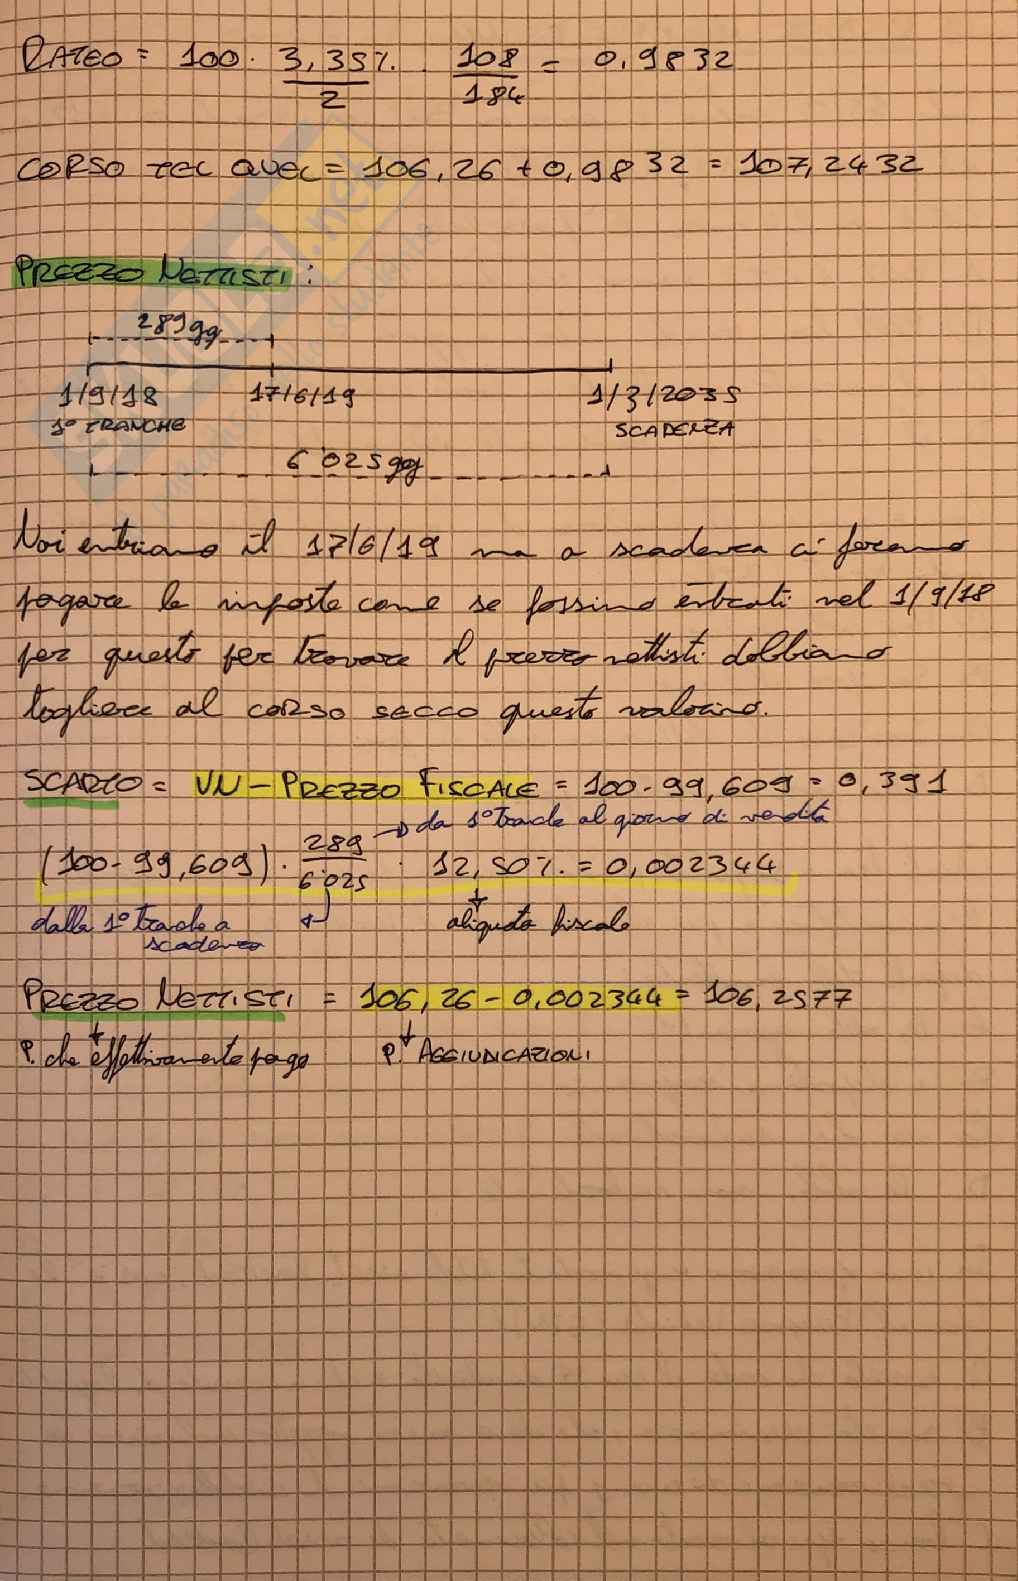 RATEO = 100 · 3,35% / 2 · 108 / 184 = 0,9832
CORSO TEL QUEL = 106,26 + 0,9832 = 107,2432
PREZZO NETTISTI :
289gg
1/9/18 17/6/19 1/3/2035
1° TRANCHE SCADENZA
6025gg
Noi entriamo il 17/6/19 ma a scadenza ci faranno
pagare le imposte come se fossimo entrati nel 1/9/18
per questo per trovare il prezzo nettisti dobbiamo
togliere al corso secco questo valorino.
SCARTO = VN - PREZZO FISCALE = 100 - 99,609 = 0,391
→ da 1° tranche al giorno di vendita
(100 - 99,609) · 289 / 6025 · 12,50% = 0,002344
dalla 1° tranche a scadenza
aliquota fiscale
PREZZO NETTISTI = 106,26 - 0,002344 = 106,2577
P. che effettivamente pago P. AGGIUDICAZIONI